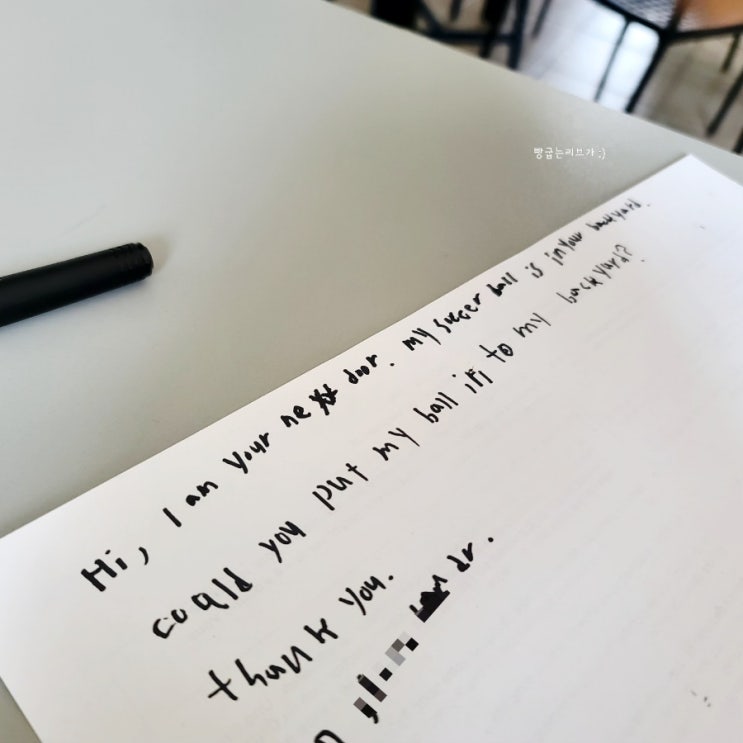 빵굽는리브가 ;)
Hi, I am your next door. my soccer ball is in your backyard.
could you put my ball in to my backyard?
thank you.
dr.